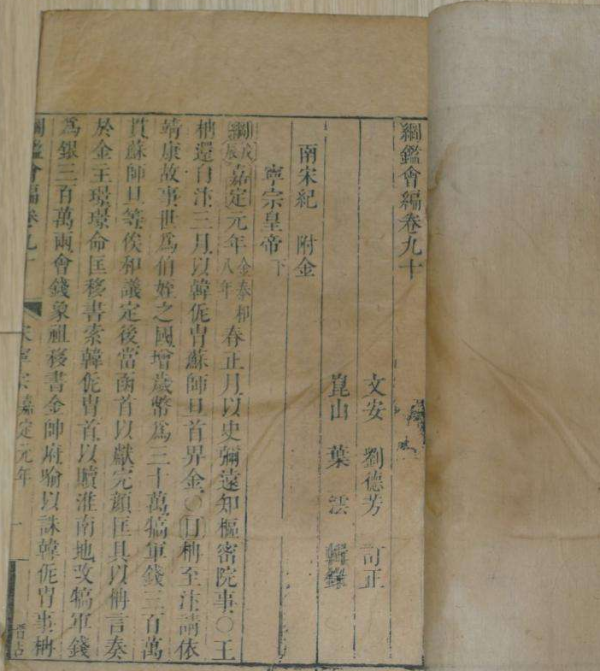 綱鑑會編卷九十
文安 劉德芳 訂正
崑山 葉澐 輯錄
南宋紀 附金
寧宗皇帝下
綱戊辰嘉定元年金泰和八年春正月以史彌遠知樞密院事○王
柟還自汴三月以韓侂冑蘇師旦首畀金○目柟至汴請依
靖康故事世爲伯姪之國增歲幣爲三十萬犒軍錢三百萬
貫蘇師旦等俟和議定後當函首以獻完顏匡具以柟言奏
於金主璟璟命匡移書索韓侂冑首以贖淮南地改犒軍錢
爲銀三百萬兩會錢象祖移書金帥府喻以誅韓侂冑事柟
綱鑑會編卷九十 宋寧宗嘉定元年 一